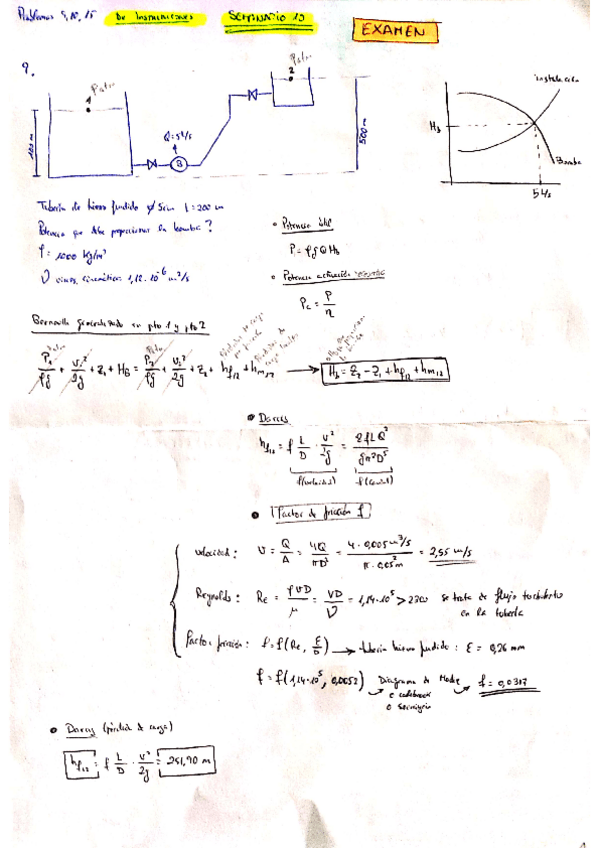 Problemas 9, 10, 15 De Instalaciones SEMINARIO 10
EXAMEN
9.
Patm
1
Patm
2
Q=5 l/s
B
100 m
500 m
instalación
H_B
Bomba
5 l/s
Tubería de hierro fundido ø 5cm l=200 m
Potencia que debe proporcionar la bomba?
ρ = 1000 kg/m³
ν visc. cinemática: 1,12·10⁻⁶ m²/s
• Potencia útil
P = ρ g Q H_B
• Potencia actuación
P_c = P/η
Bernoulli generalizado en pto 1 y pto 2
P₁/ρg + v₁²/2g + z₁ + H_B = P₂/ρg + v₂²/2g + z₂ + h_f₁₂ + h_m₁₂ → H_B = z₂ - z₁ + h_f₁₂ + h_m₁₂
• Darcy
h_f₁₂ = f L/D · v²/2g = 8fLQ²/gπ²D⁵
f(velocidad) f(caudal)
• Factor de fricción f
velocidad: v = Q/A = 4Q/πD² = 4·0,005 m³/s / π·0,05² m² = 2,55 m/s
Reynolds: Re = ρVD/μ = VD/ν = 1,14·10⁵ > 2300 se trata de flujo turbulento
en la tubería
Factor fricción: f = f(Re, ε/D) → tubería hierro fundido: ε = 0,26 mm
f = f(1,14·10⁵, 0,0052) Diagrama de Moody f = 0,0317
o colebrook
o
• Darcy (pérdida de carga)
h_f₁₂ = f L/D · v²/2g = 251,90 m